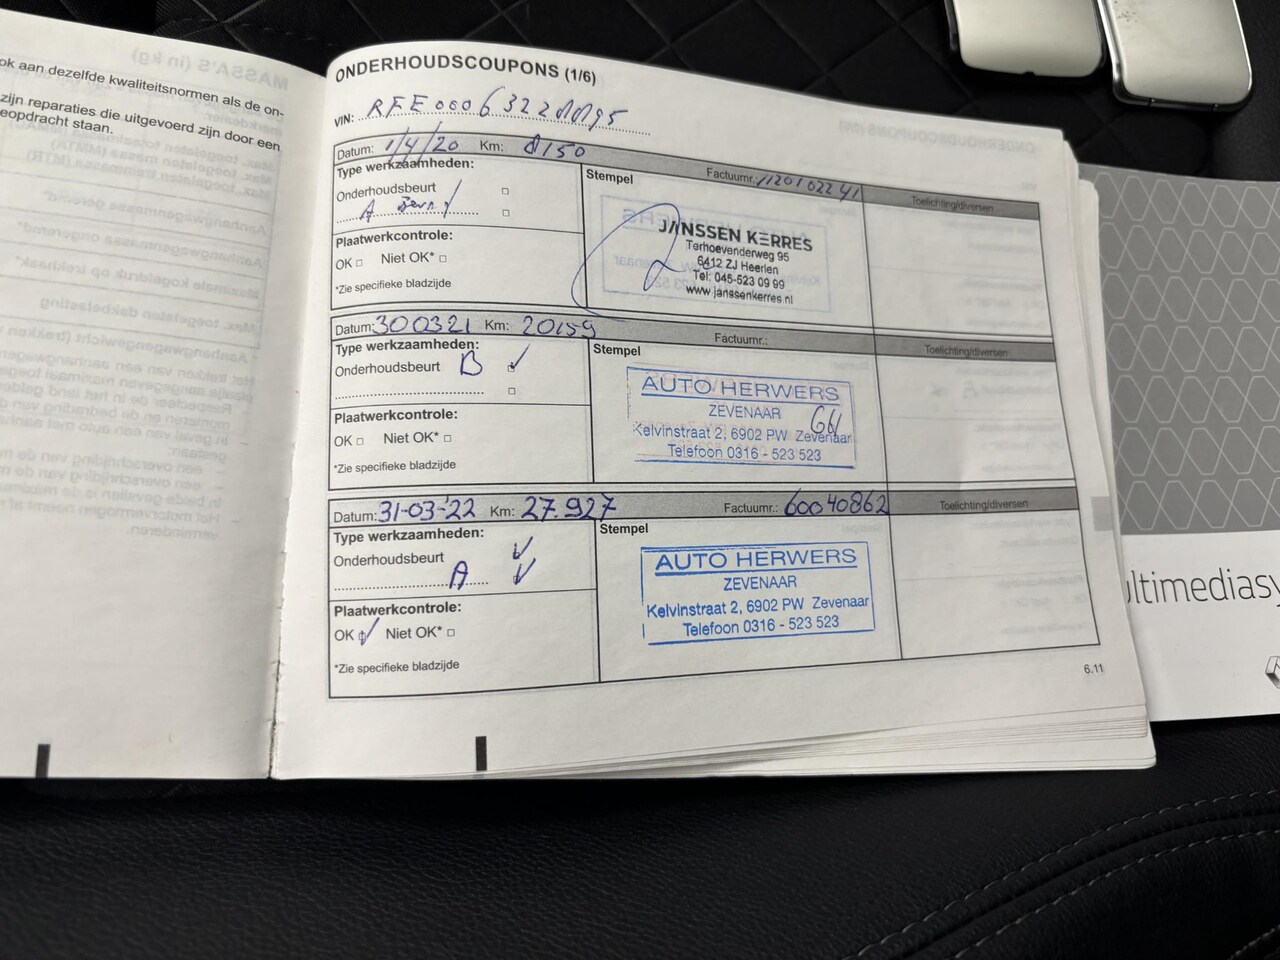 ok aan dezelfde kwaliteitsnormen als de on-
zijn reparaties die uitgevoerd zijn door een
eopdracht staan.
ONDERHOUDSCOUPONS (1/6)
VIN:
Datum: 1/4/20 Km: 8150 Factuurnr.: Toelichting/diversen
Type werkzaamheden:
Onderhoudsbeurt
A Beurt
Plaatwerkcontrole:
OK Niet OK*
*Zie specifieke bladzijde
Stempel
JANSSEN KERRES
Terhoevenderweg 95
6412 ZJ Heerlen
Tel: 045-523 09 99
www.janssenkerres.nl
Datum: 300321 Km: 20159 Factuurnr.: Toelichting/diversen
Type werkzaamheden:
Onderhoudsbeurt B
Plaatwerkcontrole:
OK Niet OK*
*Zie specifieke bladzijde
Stempel
AUTO HERWERS
ZEVENAAR
Kelvinstraat 2, 6902 PW Zevenaar
Telefoon 0316 - 523 523
Datum: 31-03-'22 Km: 27.927 Factuurnr.: 60040862 Toelichting/diversen
Type werkzaamheden:
Onderhoudsbeurt
A
Plaatwerkcontrole:
OK Niet OK*
*Zie specifieke bladzijde
Stempel
AUTO HERWERS
ZEVENAAR
Kelvinstraat 2, 6902 PW Zevenaar
Telefoon 0316 - 523 523
6.11
ultimediasy